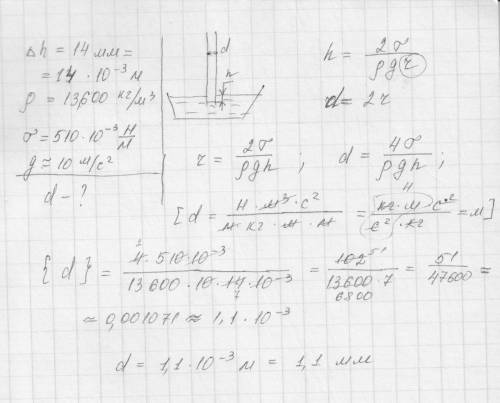 Δh = 14 мм =
= 14 · 10⁻³ м
ρ = 13600 кг/м³
σ = 510 · 10⁻³ Н/м
g ≈ 10 м/с²
d - ?
d
h
h = 2σ / ρgr
d = 2r
r = 2σ / ρgh ; d = 4σ / ρgh ;
[ d = Н · м³ · с² / м · кг · м · м = кг · м · с² / с² · кг = м ]
Н
{ d } = 4 · 510 · 10⁻³ / 13600 · 10 · 14 · 10⁻³ = 102 / 13600 · 7 = 51 / 47600 ≈
7
51
6800
≈ 0,001071 ≈ 1,1 · 10⁻³
d = 1,1 · 10⁻³ м = 1,1 мм